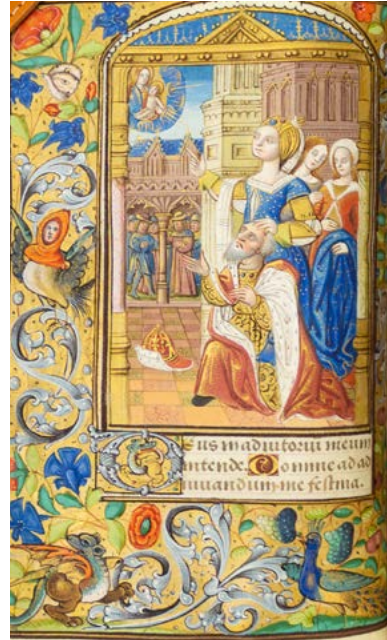 Deus in adiutoriu meum
intende. Domine ad ad
iuuandum me festina.